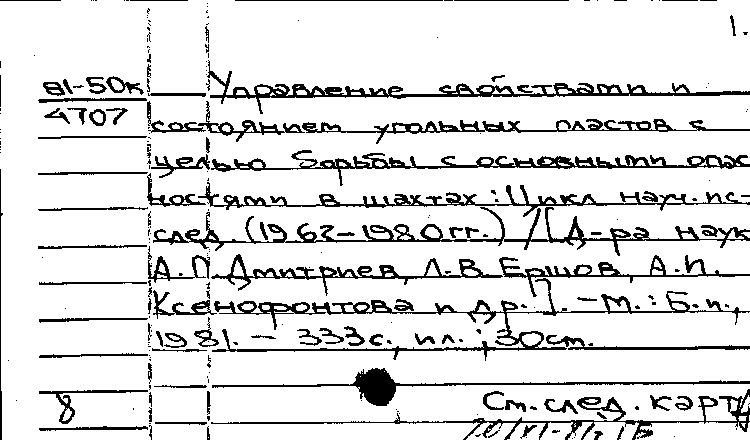 1.
81-50к Управление свойствами и
4707 состоянием угольных пластов с
целью борьбы с основными опас
ностями в шахтах: Цикл науч. ис-
след. (1962-1980гг.) / [Д-ра наук
А.П. Дмитриев, Л.В. Ершов, А.И.
Ксенофонтова и др.]. - М.: Б.и.,
1981. - 333с., ил.; 30см.
8 См. след. карт